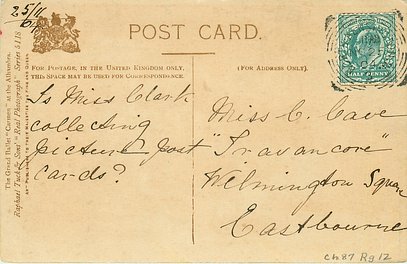 POST CARD.
FOR POSTAGE, IN THE UNITED KINGDOM ONLY,
THIS SPACE MAY BE USED FOR CORRESPONDENCE.
(FOR ADDRESS ONLY.)
HALF PENNY
Is Miss Clark
collecting
picture post
cards?
Miss C. Cave
"Travancore"
Wilmington Square
Eastbourne
The Grand Ballet "Carmen" at the Alhambra.
Raphael Tuck & Sons' "Real Photograph" Series 5118
Ch87 Rg12